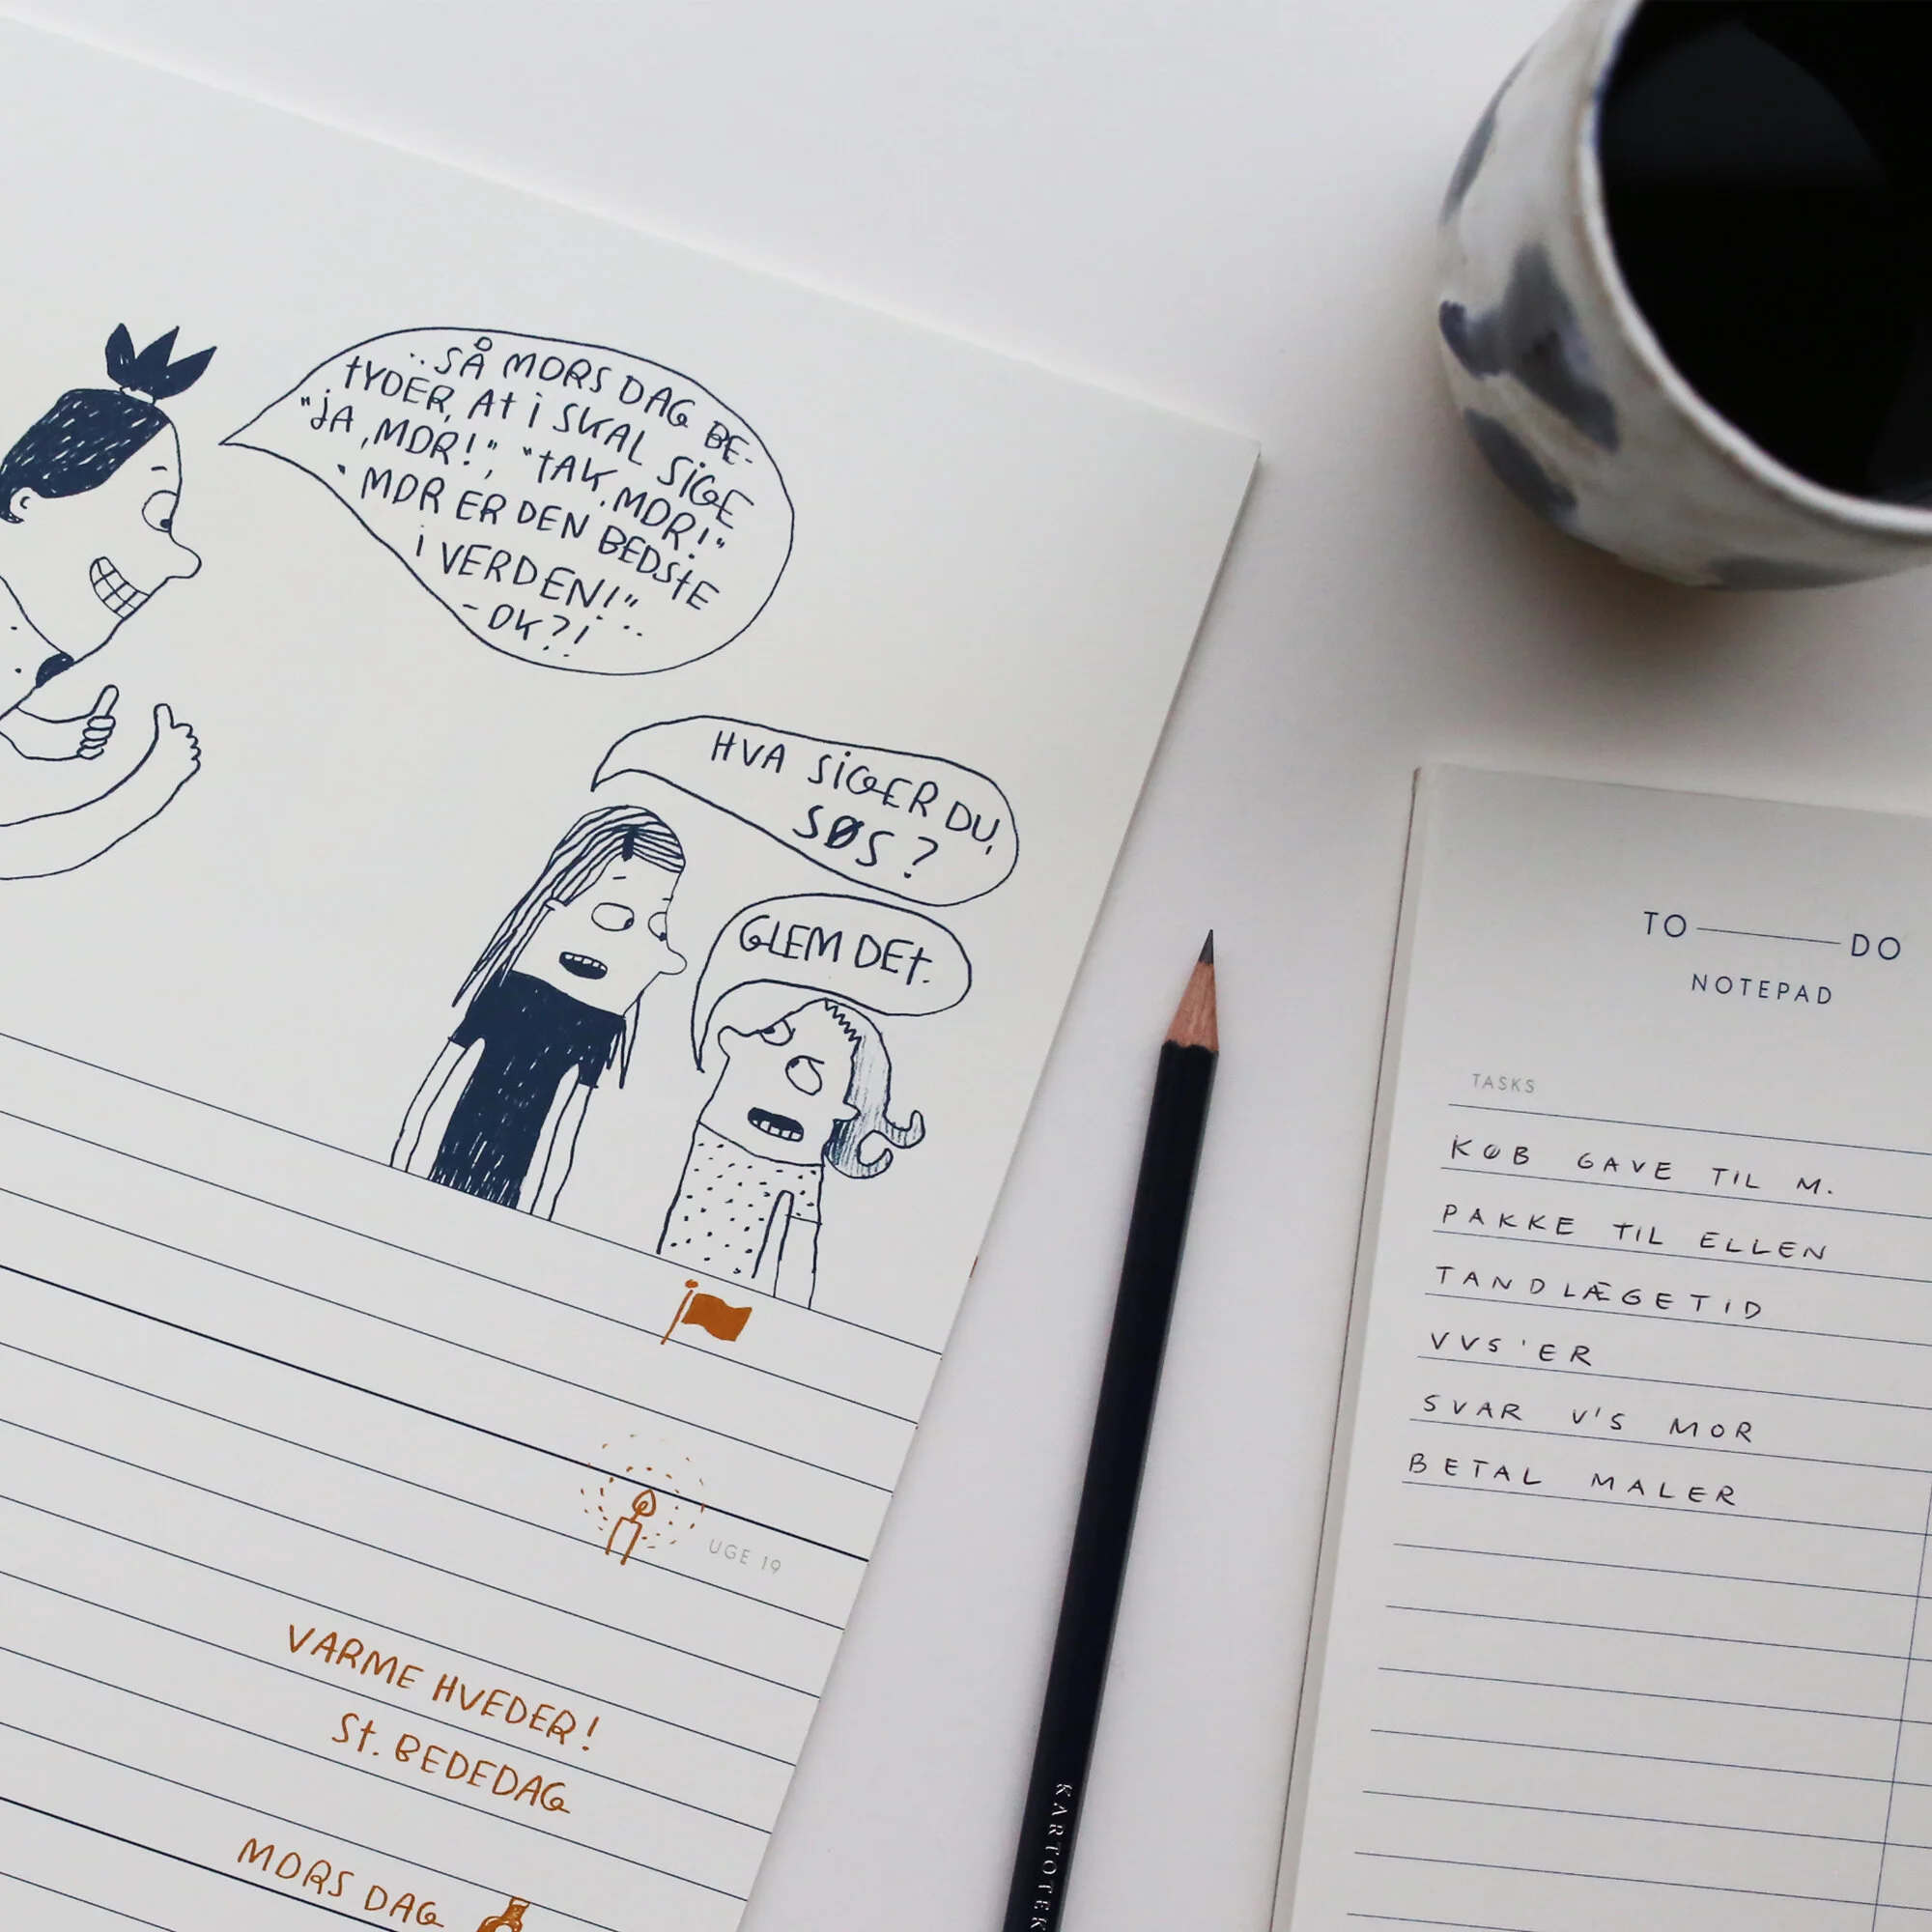 ..SÅ MORS DAG BE-
TYDER, AT I SKAL SIGE
"JA, MOR!", "TAK, MOR!"
"MOR ER DEN BEDSTE
I VERDEN!"...
- OK?!
HVA SIGER DU,
SØS?
GLEM DET.
UGE 19
VARME HVEDER!
ST. BEDEDAG
MORS DAG
TO DO
NOTEPAD
TASKS
KØB GAVE TIL M.
PAKKE TIL ELLEN
TANDLÆGETID
VVS'ER
SVAR V'S MOR
BETAL MALER